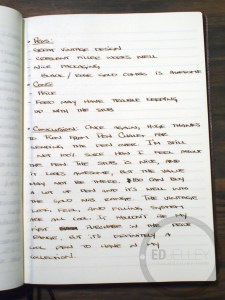 · Pros:
- Great vintage design
- Crescent filler works well
- Nice packaging
- Black/Rose Gold combo is awesome
· Cons
- Price
- Feed may have trouble keeping
up with the stubs
· Conclusion: Once again, huge thanks
to Ron from Pen Chalet for
sending the pen over. I'm still
not 100% sure how I feel about
the pen. The stub is nice, and
it looks awesome, but the value
may not be there. $180 can buy
a lot of pen and it's well into
the gold nib range. The vintage
look, feel, and filling system
are all cool. It wouldn't be my
first purchase in the price
range, but it's definitely a
cool pen to have in my
collection.
ED JELLEY